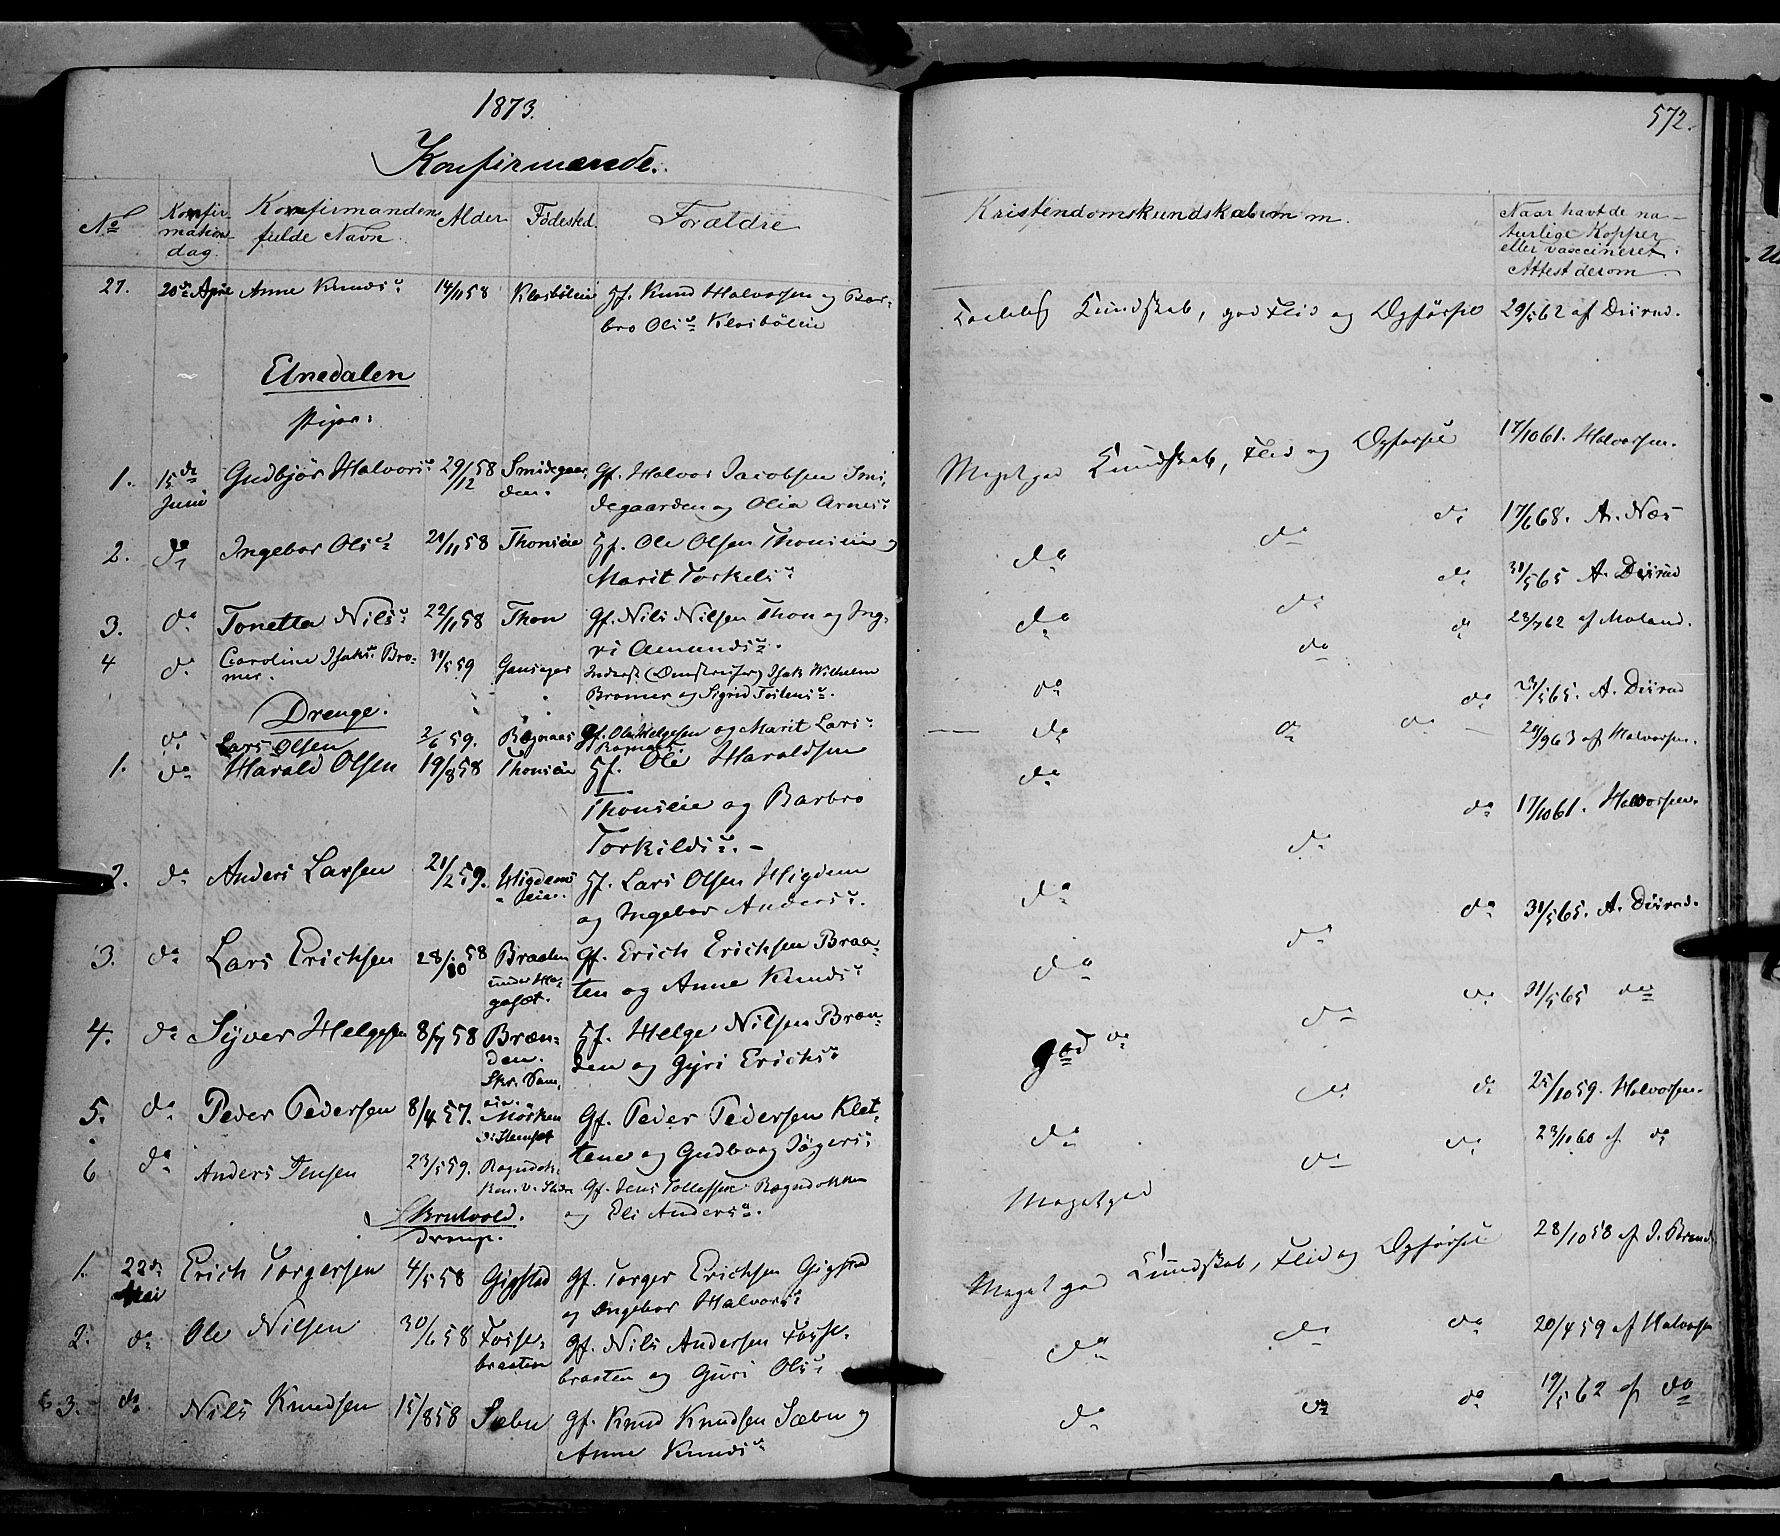 1873.
572.
Konfirmerede.
No
Konfir
mations
dag.
Konfirmandens
fulde Navn.
Alder
Fødested.
Forældre
Kristendomskundskab m m.
Naar havt de na-
turlige Kopper
eller vaccineret.
Attest derom
27. 20de April Anne Knudsd. 14/11 58 Klosbøleie Hf. Knud Halvorsen og Bar-
bro Olsd. Klosbøleie
Kundskab, god Flid og Opførsel 29/5 62 af Diirud.
Etnedalen
Piger:
1. 15de Juni Gudbjør Halvorsd. 29/12 58 Smidsgaar-
den. Gf. Halvor Jacobsen Smi-
degaarden og Olia Arnesd.
Meget god Kundskab, Flid og Opførsel 17/10 61. Halvorsen.
2. do Ingebor Olsd. 20/11 58 Thonseie Hf. Ole Olsen Thonseie og
Marit Torkelsd.
do do do 17/6 68. A. Næs
3. do Tonetta Nilsd. 22/11 58 Thon Gf. Nils Nilsen Thon og Ing-
ri Amundsd.
do do do 31/5 65 A. Diirud
4 do Caroline Isaksd. Bro-
mer. 31/5 59 Inderst Isak Wilhelm
Bromer og Sigrid
do do do 28/7 62 af Moland.
Drenge.
do Lars Olsen 2/6 59. Bøgnaas Gf. Ole Helgesen og Marit Larsd.
Bognaas.
do do do 23/5 65. A. Diirud
1. do Harald Olsen 19/8 58 Thonseie Hf. Ole Haraldsen
Thonseie og Barbro
Torkildsd. -
do do do 29/9 63 af Halvorsen.
2. do Anders Larsen 21/2 59. Higdens
eie. Hf. Lars Olsen Higden
og Ingebor Andersd.
do do do 17/10 61. Halvorsen.
3. do Lars Erichsen 28/10 58 Braaten
under Ha-
gaset. Gf. Erich Erichsen Braa-
ten og Anne Knudsd.
do do do 31/5 65. A. Diirud.
4. do Syver Helgesen 8/7 58 Bræn-
den. Hf. Helge Nilsen Bræn-
den og Gyri Erichsd.
god do do do 31/5 65 do
5. do Peder Pedersen 8/4 57. Mørken Gf. Peder Pedersen Klet-
tene og Gudborg
do do do 25/10 59. Halvorsen.
6 do Anders Jensen 23/5 59. Gf. Jens Tollefsen Bøgndokken
og Eli Andersd.
Meget god do do 23/10 60 af do
Bruvold.
Drenge.
1. 22de Mai Erich Torgersen 4/5 58 Gigstad Gf. Torger Erichsen Gigstad
og Ingebor Halvorsd.
Meget god Kundskab, Flid og Opførsel 28/10 58 af
2. do Ole Nilsen 30/6 58 Fosse-
braaten Gf. Nils Andersen Fosse-
braaten og Guri Olsd.
do do do 20/4 59 af Halvorsen
3. do Nils Knudsen 15/8 58 Sæbu Gf. Knud Knudsen Sæbu og
Anne Knudsd.
do do do 19/5 62 af do